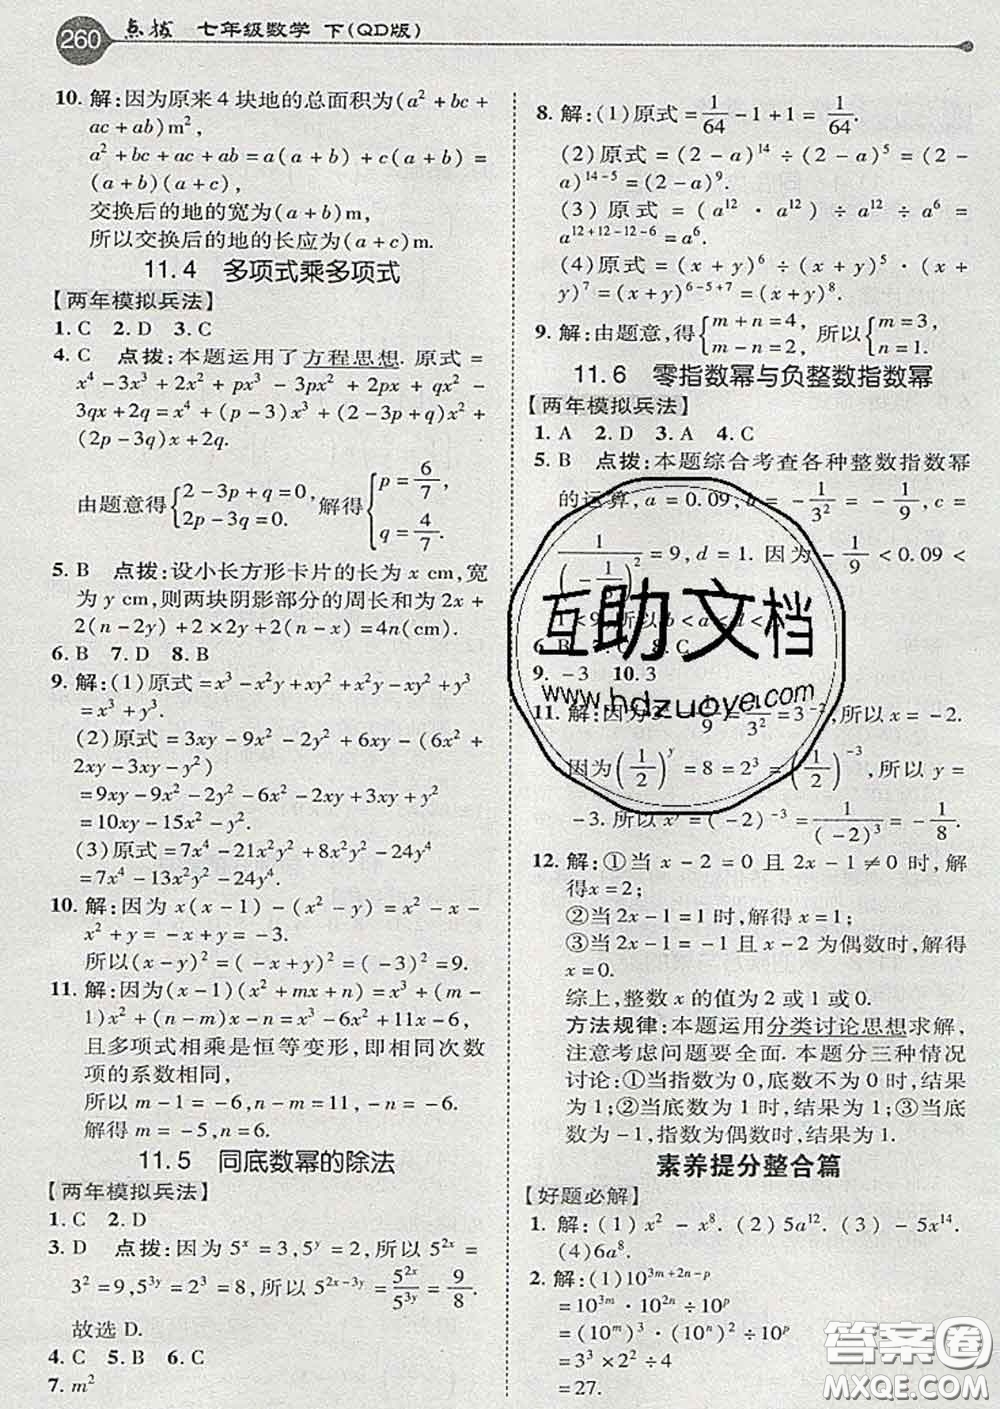 260 点拨 七年级数学 下(QD版)
10. 解:因为原来4块地的总面积为(a² + bc +
ac + ab) m²,
a² + bc + ac + ab = a(a + b) + c(a + b) =
(a + b)(a + c),
交换后的地的宽为(a + b)m,
所以交换后的地的长应为(a + c)m.
11.4 多项式乘多项式
【两年模拟兵法】
1. C 2. D 3. C
4. C 点拨:本题运用了方程思想. 原式 =
x⁴ - 3x³ + 2x² + px³ - 3px² + 2px + qx² -
3qx + 2q = x⁴ + (p - 3)x³ + (2 - 3p + q)x² +
(2p - 3q)x + 2q.
由题意得{2 - 3p + q = 0, 2p - 3q = 0. 解得{p = 6/7, q = 4/7.
5. B 点拨:设小长方形卡片的长为 x cm,宽
为 y cm,则两块阴影部分的周长和为 2x +
2(n - 2y) + 2×2y + 2(n - x) = 4n(cm).
6. B 7. D 8. B
9. 解:(1)原式 = x³ - x²y + xy² + x²y - xy² + y³
= x³ + y³.
(2)原式 = 3xy - 9x² + 3xy - y² - (6x² +
4xy - 3xy - 2y²)
= 9xy - 9x² - 2y² - 6x² - 4xy + 3xy + 2y²
= 10xy - 15x² - y².
(3)原式 = 7x⁴ - 21x²y² + 8x²y² - 24y⁴
= 7x⁴ - 13x²y² - 24y⁴.
10. 解:因为 x(x - 1) - (x² - y) = x² - x -
x² + y = -x + y = -3.
所以(x - y)² = (-x + y)² = (-3)² = 9.
11. 解:因为(x - 1)(x² + mx + n) = x³ + (m -
1)x² + (n - m)x - n = x³ - 6x² + 11x - 6,
且多项式相乘是恒等变形,即相同次数
项的系数相同,
所以 m - 1 = -6, n - m = 11, -n = -6,
解得 m = -5, n = 6.
11.5 同底数幂的除法
【两年模拟兵法】
1. C 2. D
3. D 点拨:因为 5ˣ = 3,5ʸ = 2,所以 5²ˣ =
3² = 9,5³ʸ = 2³ = 8,所以 5²ˣ⁻³ʸ = 5²ˣ/5³ʸ = 9/8.
故选 D.
4. C 5. B 6. C
7. m²
8. 解:(1)原式 = 1/64 - 1 + 1 = 1/64.
(2)原式 = (2 - a)¹⁴ ÷ (2 - a)⁵ = (2 -
a)¹⁴⁻⁵ = (2 - a)⁹.
(3)原式 = (a¹² · a¹²) ÷ a¹² ÷ a⁶ =
a¹²⁺¹²⁻¹²⁻⁶ = a⁶.
(4)原式 = (x + y)⁶ ÷ (x + y)⁵ · (x +
y)⁷ = (x + y)⁶⁻⁵⁺⁷ = (x + y)⁸.
9. 解:由题意,得{m + n = 4, m - n = 2, 所以{m = 3, n = 1.
11.6 零指数幂与负整数指数幂
【两年模拟兵法】
1. A 2. D 3. A 4. C
5. B 点拨:本题综合考查各种整数指数幂
的运算, a = 0.09, b = -1/3² = -1/9, c =
1/(-1/3)² = 9, d = 1. 因为 -1/9 < 0.09 <
1 < 9,所以 b < a < d <
6. B 7. C 8. C
9. -3 10. 3
11. 解:因为 1/9 = 1/3² = 3⁻²,所以 x = -2.
因为(1/2)ʸ = 8 = 2³ = (1/2)⁻³,所以 y =
-3. 所以 xʸ = (-2)⁻³ = 1/(-2)³ = -1/8.
12. 解:①当 x - 2 = 0 且 2x - 1 ≠ 0 时,解
得 x = 2;
②当 2x - 1 = 1 时,解得 x = 1;
③当 2x - 1 = -1 且 x - 2 为偶数时,解得
x = 0.
综上,整数 x 的值为 2 或 1 或 0.
方法规律:本题运用分类讨论思想求解,
注意考虑问题要全面. 本题分三种情况
讨论:①当指数为 0,底数不为 0 时,幂
为 1;②当底数为 1 时,幂为 1;③当底
数为 -1,指数为偶数时,幂的结果为 1.
素养提分整合篇
【好题必解】
1. 解:(1)x² - x⁸. (2)5a¹². (3) - 5x¹⁴.
(4)6a⁸.
2. 解:(1)10³ᵐ⁺²ⁿ⁻ᵖ
= 10³ᵐ · 10²ⁿ ÷ 10ᵖ
= (10ᵐ)³ · (10ⁿ)² ÷ 10ᵖ
= 3³ × 2² ÷ 4
= 27.
互助文档
www.hdzuoye.com
答案圈
MXQE.COM